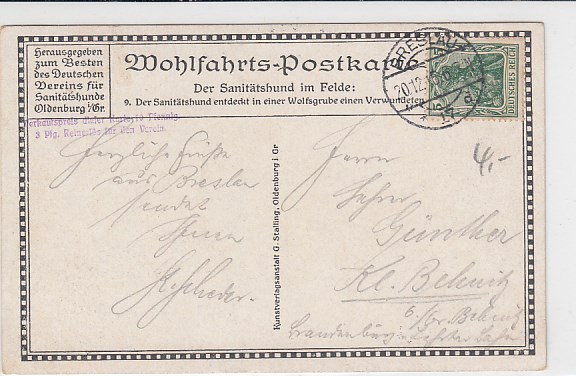 Herausgegeben
zum Besten
des Deutschen
Vereins für
Sanitätshunde
Oldenburg i/Gr.
Wohlfahrts-Postkarte
Der Sanitätshund im Felde:
9. Der Sanitätshund entdeckt in einer Wolfsgrube einen Verwundeten
BRESLAU
20.12.
DEUTSCHES REICH
Verkaufspreis dieser Karte 10 Pfennig
3 Pfg. Reinerlös für den Verein.
4,-
Herzliche Grüße
aus Breslau
sendet
Ihnen
Kunstverlagsanstalt G. Stalling, Oldenburg i Gr
Herrn
Lehrer
Günther
Kl. Behnitz
b/Gr Behnitz
Brandenburg